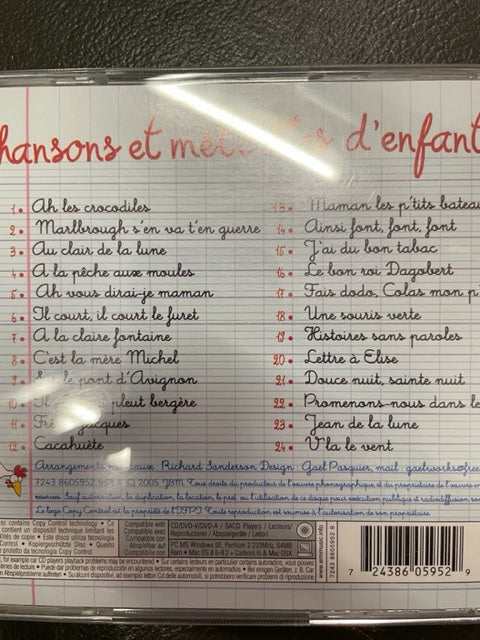 hansons et mél d'enfant
1. Ah les crocodiles
2. Marlbrough s'en va t'en guerre
3. Au clair de la lune
4. A la pêche aux moules
5. Ah vous dirai-je maman
6. Il court, il court le furet
7. A la claire fontaine
8. C'est la mère Michel
9. le pont d'Avignon
10. Il pleut bergère
11. Frè Jacques
12. Cacahuète
13. Maman les p'tits bateau
14. Ainsi font, font, font
15. J'ai du bon tabac
16. Le bon roi Dagobert
17. Fais dodo, Colas mon p'
18. Une souris verte
19. Histoires sans paroles
20. Lettre à Elise
21. Douce nuit, sainte nuit
22. Promenons-nous dans le
23. Jean de la lune
24. V'la le vent
Arrangements Richard Sanderson Design : Gael Pasquier, mail : gaelwork@free
7243 8605952 2005 Tous droits du producteur de l'œuvre phonographique et du propriétaire de l'œuvre
réservés. Sauf autorisation, la duplication, la location, le prêt ou l'utilisation de ce disque pour exécution publique et radiodiffusion
Le logo Copy Control est la propriété de l'IFPI. Tous utilisation de son propriétaire.
sc contains Copy Control technology • Ce
contient un dispositif technique limitant les
lités de copie • Este disco utiliza tecnología
Control • Kopiergeschützte Disc • Questo
protetto da tecnologia Copy Control
Compatible with
Compatible avec
Compatible con
Abspielbar auf
Compatibile con
CD/DVD-V/DVD-A / SACD Players / Lecteurs/
Reproductores / Abspielgeräte / Lettori
PC MS Windows 95, Pentium 2 233MHz, 64MB
Ram • Mac OS 8.6-9.2 • CarbonLib & Mac OSX
for example car CD players playback problems may be encountered • Sur certains lecteurs en particulier certains autoradios, vous
lèmes de lecture • Puede dar problemas de reproducción en algunos lectores, especialmente en automóviles • Bei einigen Geräten, z. B. Car
Abspielfehler auftreten • Su alcuni dispositivi, ad esempio lettori Cd delle automobili, si potrebbero verificare problemi di riproduzione
www.emimusic.info
7243 8605952 9
7 24386 05952 9